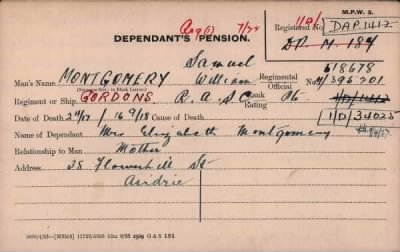 Reg(1) 7/24
M.P.W. 3.
11D/
DEPENDANT'S PENSION.
Registered No. DAP.1412
DP. M. 184
Samuel
Man's Name MONTGOMERY William
(Surname first - in Block Letters)
Regimental Official No. 618678
M/396201
Regiment or Ship GORDONS. R. A. S C Rank Rating Pte
Date of Death 2 11/17 / 16 9/18 Cause of Death
1/D/34025
Name of Dependant Mrs Elizabeth Montgomery
Relationship to Man Mother
Address 38 Flowerhill St
Airdrie
G & S 151